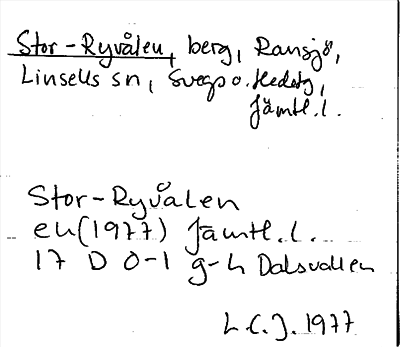 Stor-Ryvålen, berg, Ransjö,
Linsells sn, Svegs o. Hedetg,
Jämtl. l.
Stor-Ryvålen
en (1977) Jämtl. l.
17 D 0-1 g-h Dalsvallen
L C. J. 1977